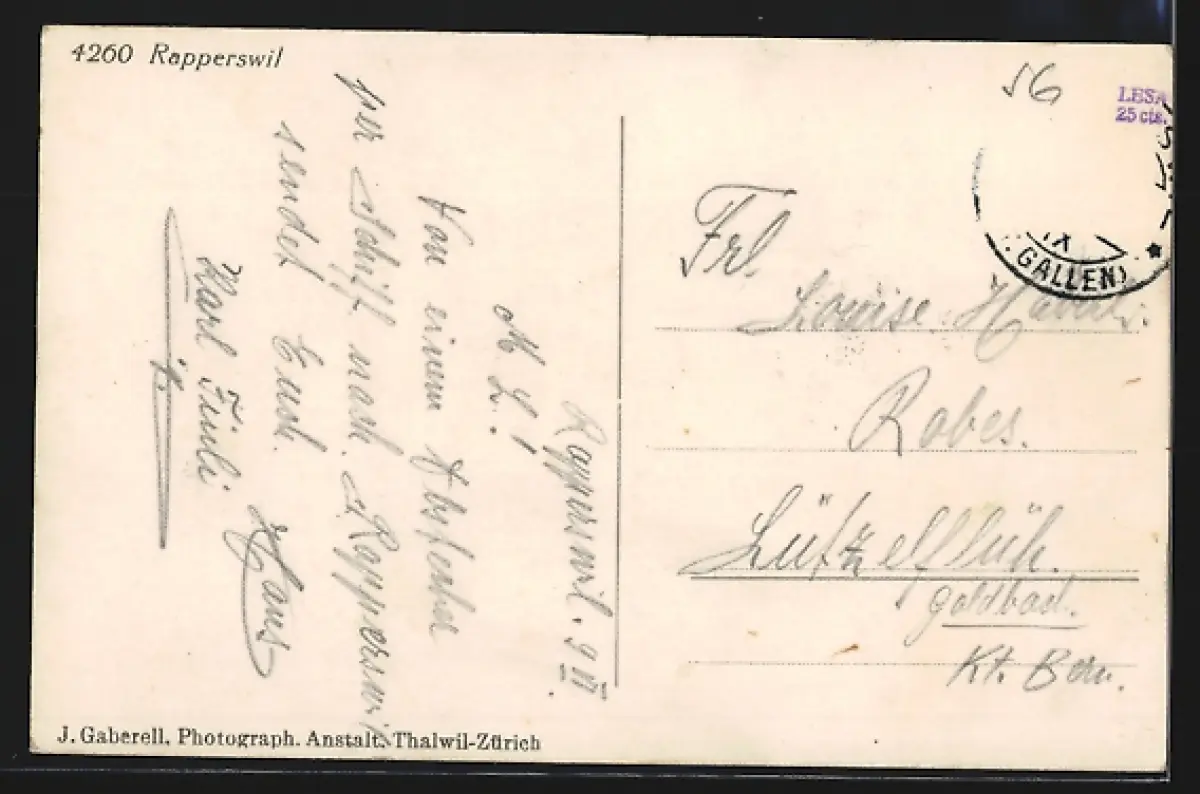 4260 Rapperswil
56
LESA
25 cts.
GALLEN)
IX
Frl.
Louise
Robes.
Lützelflüh.
Goldbach.
Kt. Bern.
Rapperswil. 9 VI
M. L!
Von einem Abstecher
per Schiff nach Rapperswil
sendet Euch
Hans
Karl
J. Gaberell, Photograph. Anstalt, Thalwil-Zürich